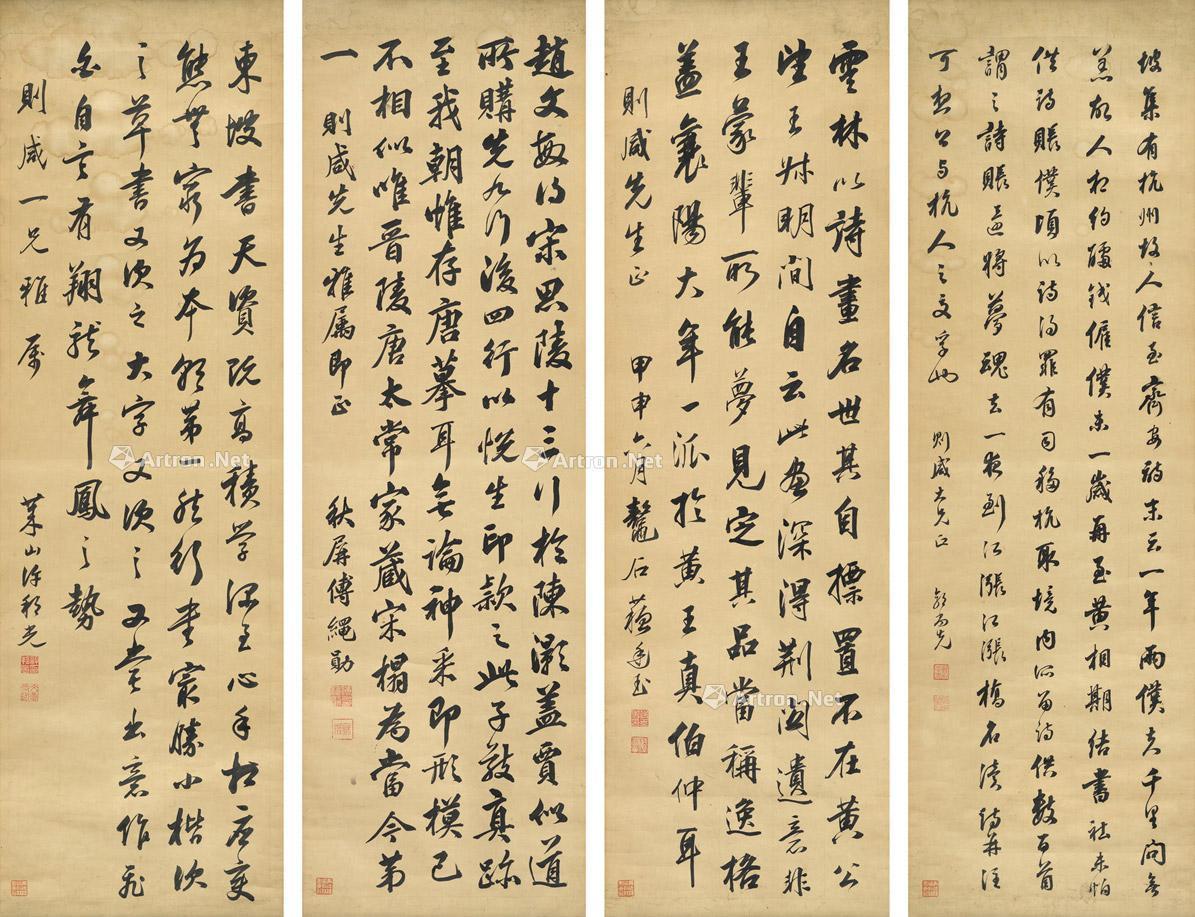 坡集有杭州故人信至齊安詩末云一年兩僕夫千里問無
恙故人相約醵錢僱僕夫一歲再至黃相期結書社未怕
供詩賬僕頃以詩得罪有司移杭取境內所留詩供數百首
謂之詩賬還將夢魂去一夜到江漲江漲橋名讀詩并注
可想公與杭人之交字也
則咸大兄正
雲林以詩畫名世其自標置不在黃公
望王叔明間自云此畫深得荆關遺意非
王蒙輩所能夢見定其品當稱逸格
蓋襄陽大年一派於黃王真伯仲耳
則咸先生正 甲申六月 鼇石蘇廷玉
趙文敏得宋思陵十三行於陳灝蓋賈似道
所購先九行後四行以悅生印款之此子敬真跡
至我朝惟存唐摹耳無論神采即形模已
不相似惟晉陵唐太常家藏宋榻為當今第
一
則咸先生雅屬即正 秋屏傅繩勛
東坡書天資既高積學深至心手相應變
態無窮為本朝第一然行書最勝小楷次
之草書又次之大字又次之又嘗出意作飛
白自言有翔龍舞鳳之勢
則咸一兄雅屬
萊山許
Artron.Net
Artron.Net
Artron.Net
Artron.Net